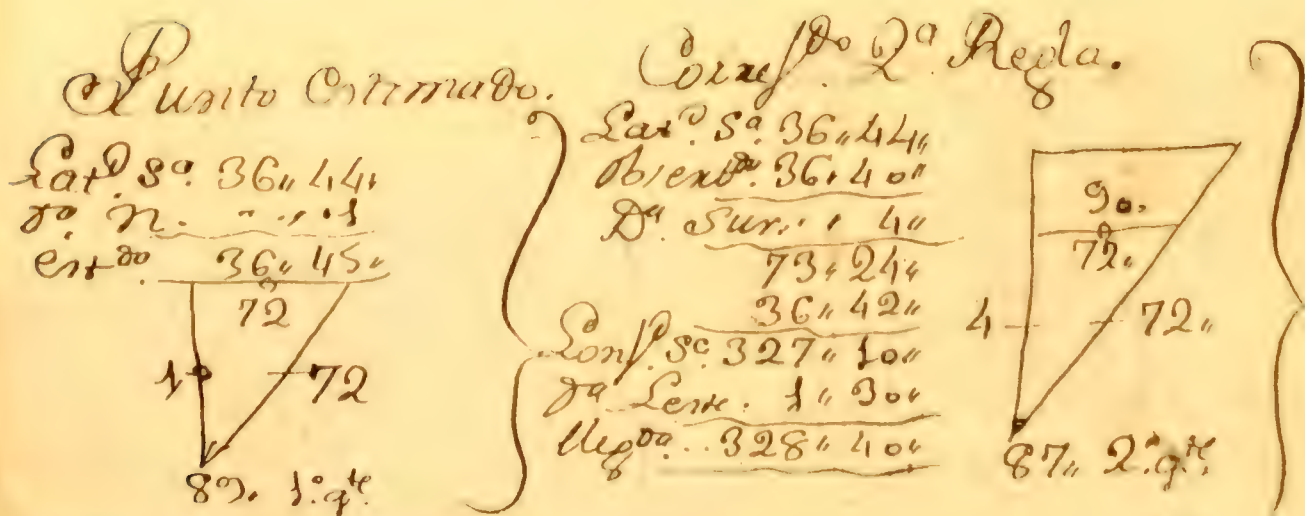 Punto Estimado.
Latd. Sa. 36,, 44,
Da. N. . . , . 1
Estdo 36,, 45,,
72
1
72
89,, 1º. qte.
Corresdo 2ª. Regla.
Latd. Sa. 36,, 44,,
Observda. 36,, 40,,
Da. Sur. . , 4,,
73,, 24,,
36,, 42,,
Long. Sa. 327,, 10,,
Da. Leste. 1,, 30,,
Llegda... 328,, 40,,
90,
72,,
4
72,,
87,, 2º. qte.